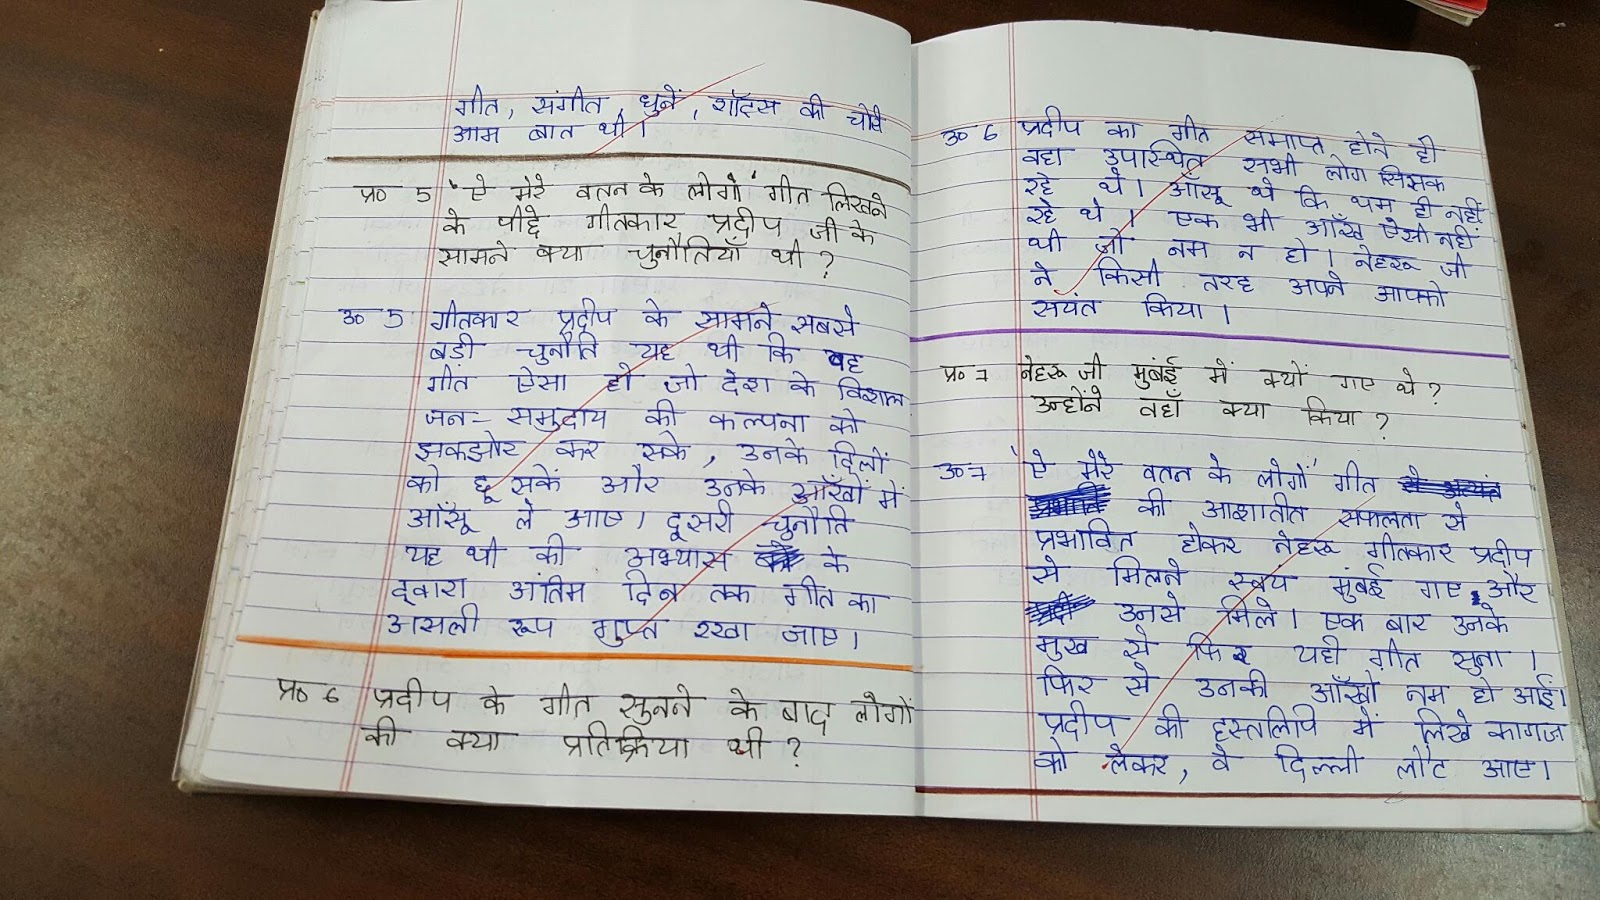 गीत, संगीत, धुनें, शॉट्स की चोरी
आम बात थी।
प्र० 5 'ऐ मेरे वतन के लोगों' गीत लिखने
के पीछे गीतकार प्रदीप जी के
सामने क्या चुनौतियाँ थी?
उ० 5 गीतकार प्रदीप के सामने सबसे
बड़ी चुनौति यह थी कि वह
गीत ऐसा हो जो देश के विशाल
जन-समुदाय की कल्पना को
झकझोर कर सके, उनके दिलों
को छू सकें और उनके आँखों में
आँसू ले आए। दूसरी चुनौति
यह थी की अभ्यास के
द्वारा अंतिम दिन तक गीत का
असली रूप गुप्त रखा जाए।
प्र० 6 प्रदीप के गीत सुनने के बाद लोगों
की क्या प्रतिक्रिया थी?
उ० 6 प्रदीप का गीत समाप्त होने ही
वहा उपास्थित सभी लोग सिसक
रहे थे। आँसू थे कि थम ही नहीं
रहे थे। एक भी आँख ऐसी नहीं
थी जो नम न हो। नेहरू जी
ने किसी तरह अपने आपको
सयंत किया।
प्र० 7 नेहरू जी मुंबई में क्यों गए थे?
उन्होंने वहाँ क्या किया?
उ० 7 'ऐ मेरे वतन के लोगों' गीत
की आशातीत सफलता से
प्रभावित होकर नेहरू गीतकार प्रदीप
से मिलने स्वयं मुंबई गए और
उनसे मिले। एक बार उनके
मुख से फिर यही गीत सुना।
फिर से उनकी आँखों नम हो आई।
प्रदीप की हस्तलिपि में लिखे कागज
को लेकर, वे दिल्ली लौट आए।